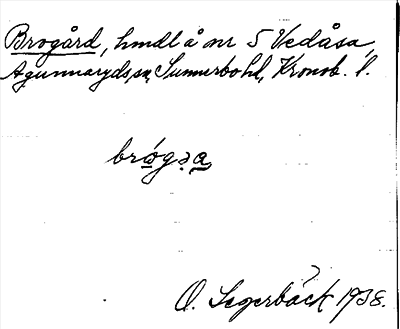 Brogård, hmdl å nr 5 Vedåsa,
Agunnaryds sn, Sunnerbo hd, Kronob. l.
brógａ
O. Segerbäck 1938.